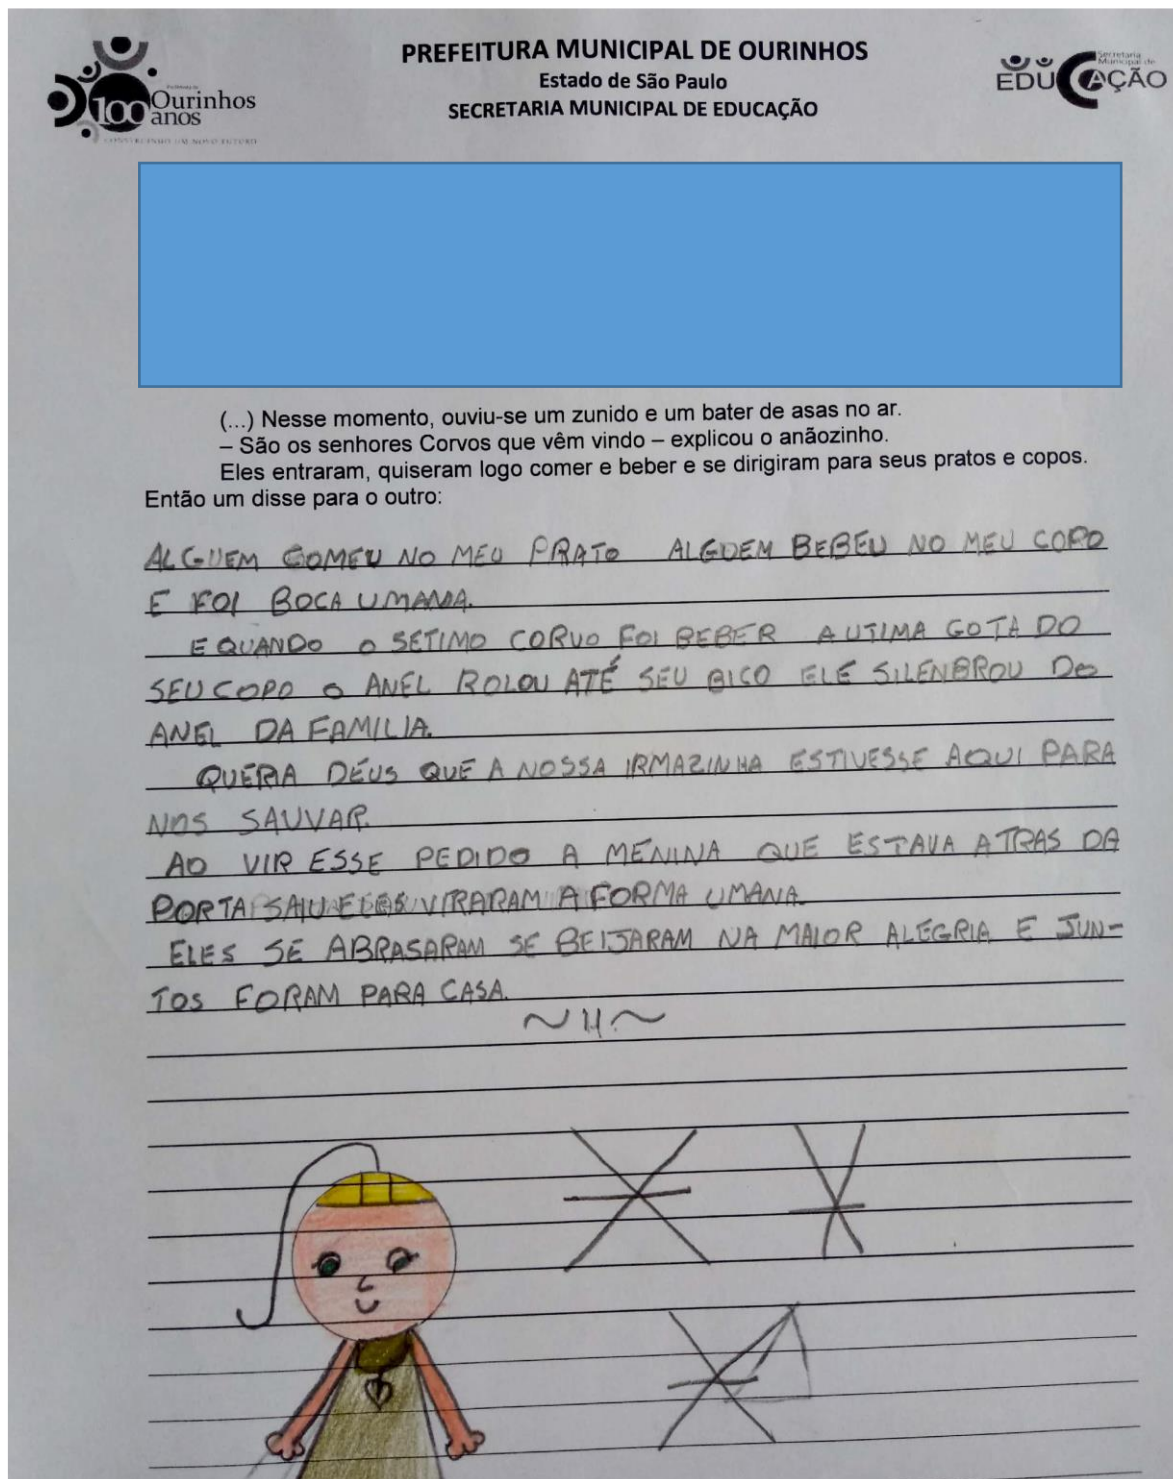 PREFEITURA MUNICIPAL DE OURINHOS
Estado de São Paulo
SECRETARIA MUNICIPAL DE EDUCAÇÃO
100 Ourinhos
anos
CONSTRUINDO UM NOVO FUTURO
Secretaria
Municipal de
EDUCAÇÃO
(...) Nesse momento, ouviu-se um zunido e um bater de asas no ar.
– São os senhores Corvos que vêm vindo – explicou o anãozinho.
Eles entraram, quiseram logo comer e beber e se dirigiram para seus pratos e copos.
Então um disse para o outro:
ALGUEM COMEU NO MEU PRATO ALGUEM BEBEU NO MEU COPO
E FOI BOCA UMANA.
E QUANDO O SETIMO CORVO FOI BEBER A UTIMA GOTA DO
SEU COPO O ANEL ROLOU ATÉ SEU BICO ELE SILENBROU DO
ANEL DA FAMILIA.
QUERIA DEUS QUE A NOSSA IRMAZINHA ESTIVESSE AQUI PARA
NOS SAUVAR.
AO VIR ESSE PEDIDO A MENINA QUE ESTAVA ATRAS DA
PORTA SAIU E VIRARAM A FORMA UMANA.
ELES SE ABRASARAM SE BEIJARAM NA MAIOR ALEGRIA E JUN-
TOS FORAM PARA CASA.